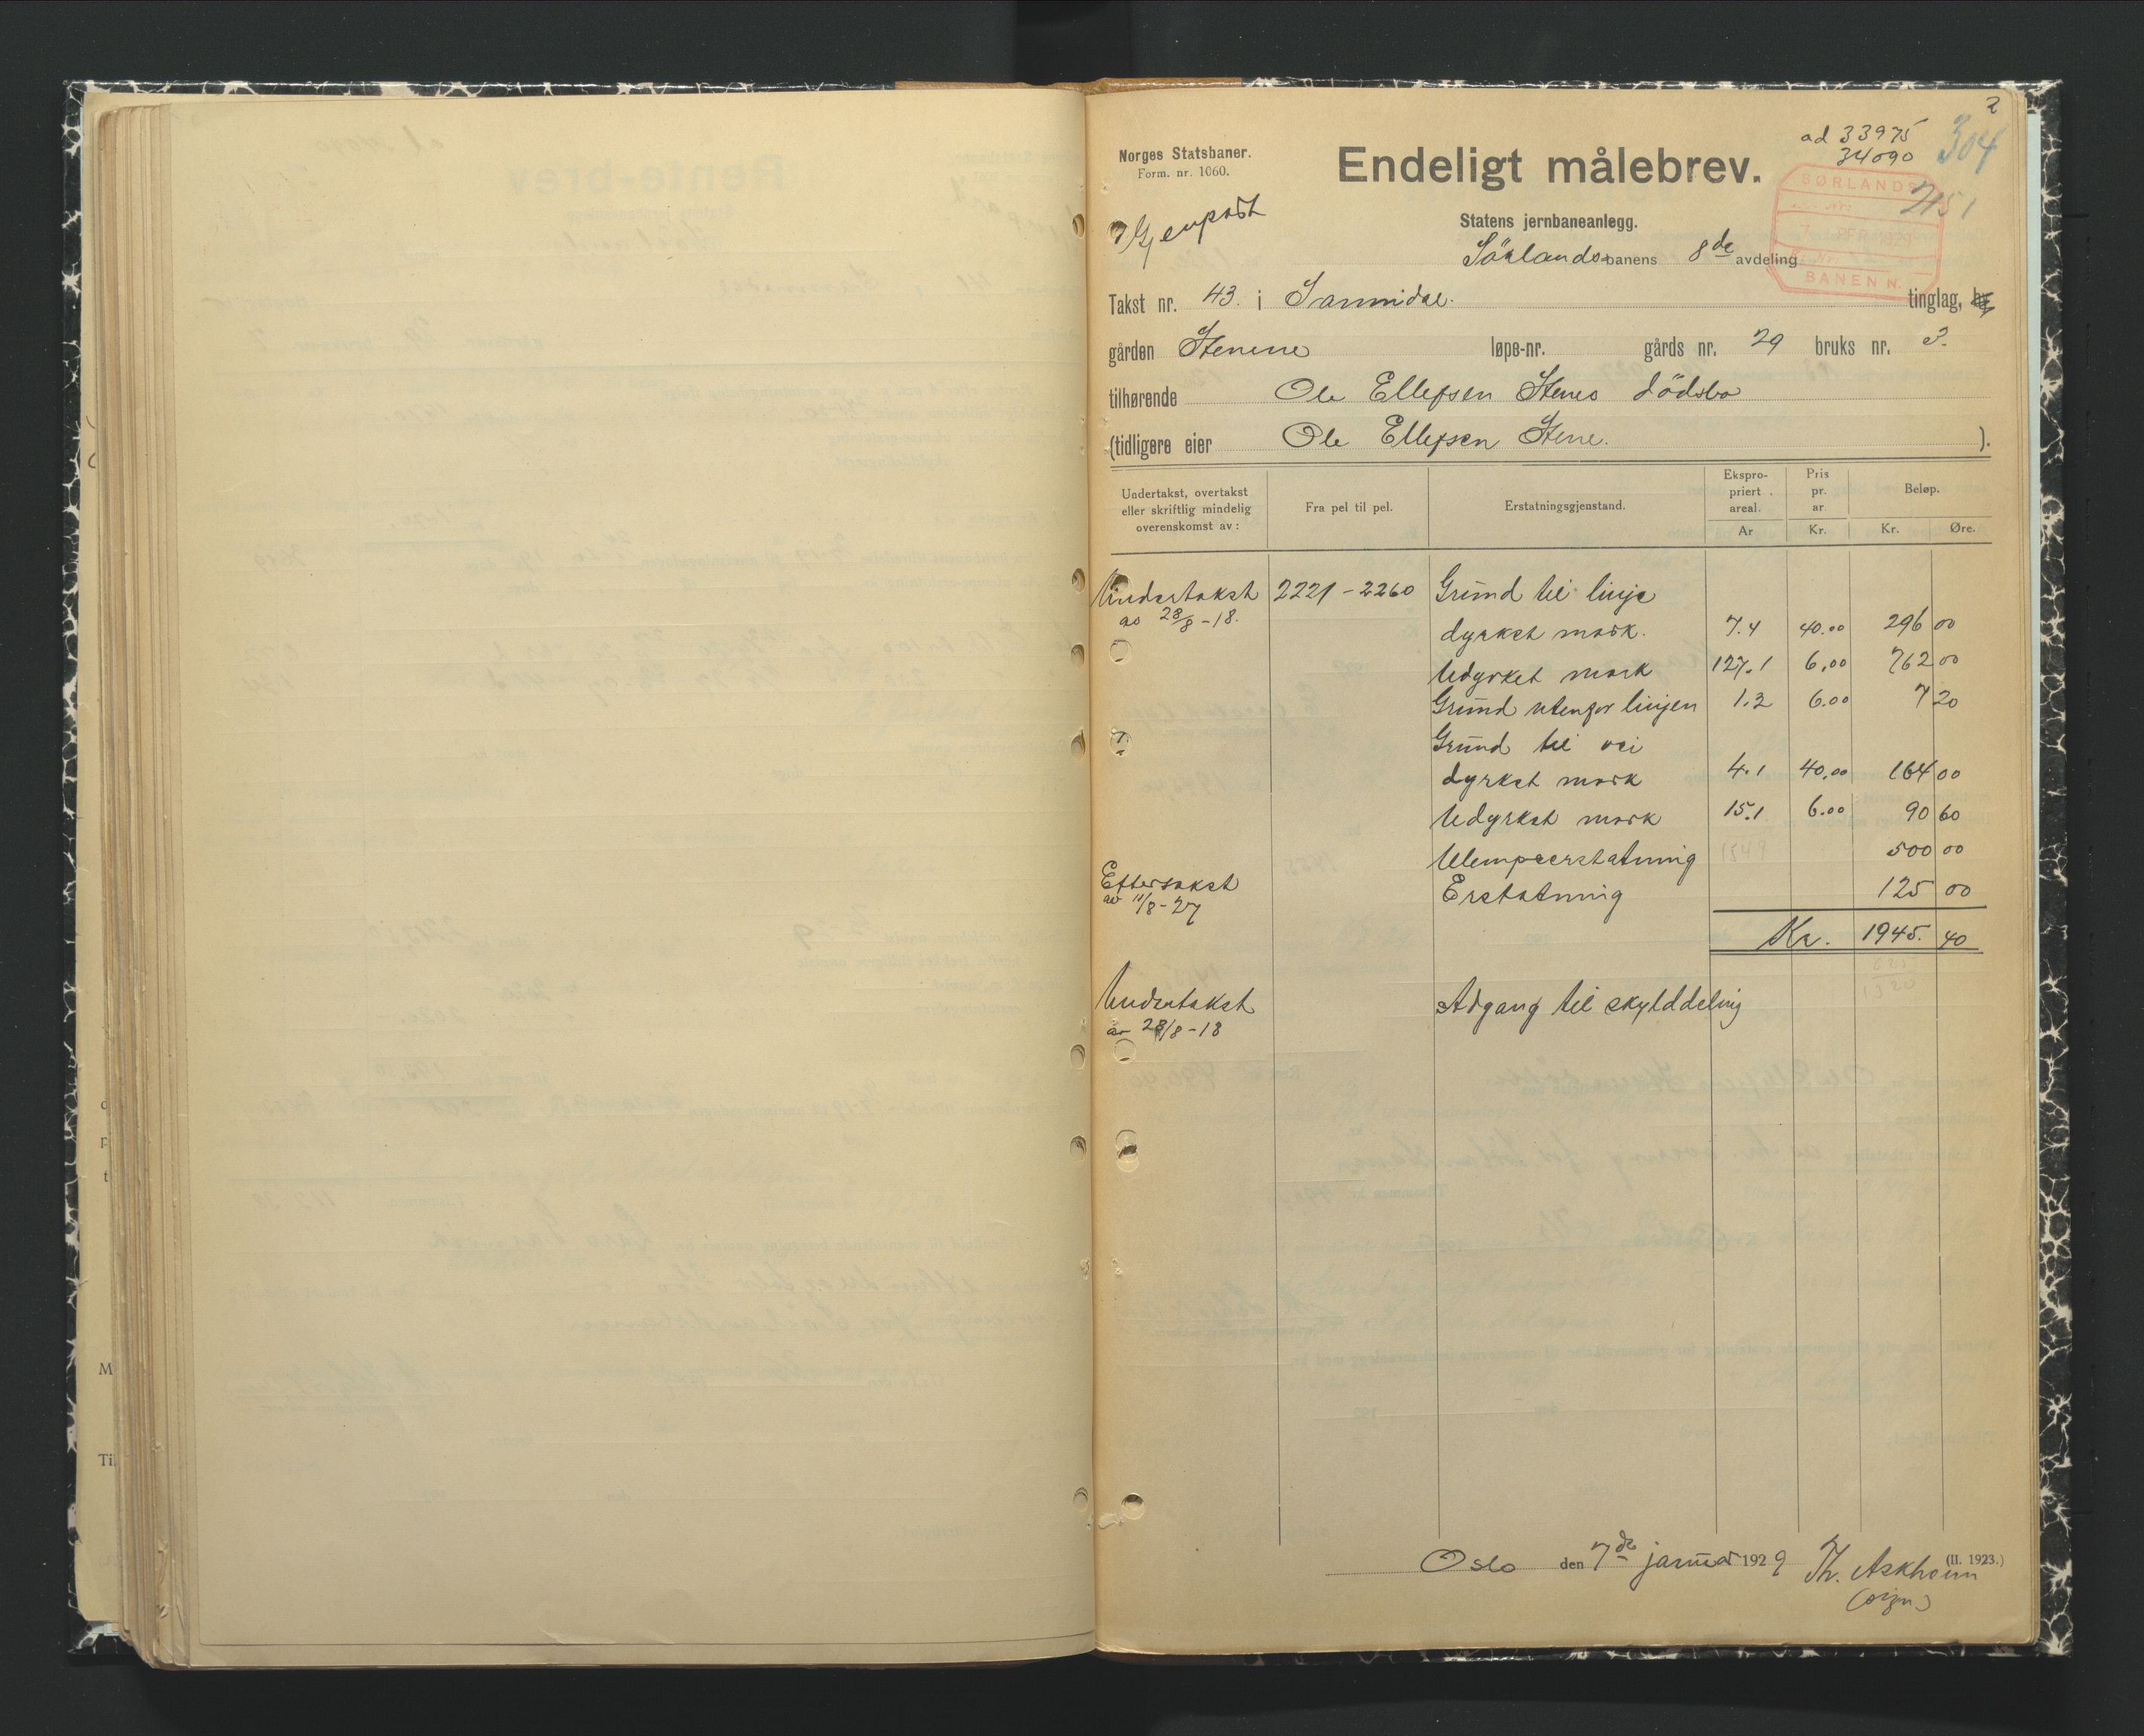 2
ad 33975
34090
304
Norges Statsbaner.
Form. nr. 1060.
Endeligt målebrev.
Gjenpart
SØRLANDS
2151
BANEN N.
Statens jernbaneanlegg.
Sörlandsbanens 8de avdeling
Takst nr. 43. i Sannidal. tinglag,
gården Stenene løpe-nr. gårds nr. 29 bruks nr. 3.
tilhørende Ole Ellefsen Stenes dödsbo
(tidligere eier Ole Ellefsen Stene. ).
Undertakst, overtakst eller skriftlig mindelig overenskomst av: Fra pel til pel. Erstatningsgjenstand. Ekspropriert areal. Ar Pris pr. ar. Kr. Beløp. Kr. Øre.
Undertakst 2221 - 2260 Grund til linje
av 28/8-18. dyrket mark. 7.4 40.00 296 00
Udyrket mark 127.1 6.00 762 00
Grund utenfor linjen 1.2 6.00 7 20
Grund til vei
dyrket mark 4.1 40.00 164 00
Udyrket mark 15.1 6.00 90 60
Ulempeerstatning 500 00
Eftertakst Erstatning 125 00
av 11/8-27
Kr. 1945. 40
Undertakst Adgang til skylddeling
av 28/8-18
Oslo den 7de januar 1929 Th. Askholm
(II. 1923.)
(sign)
M
Til